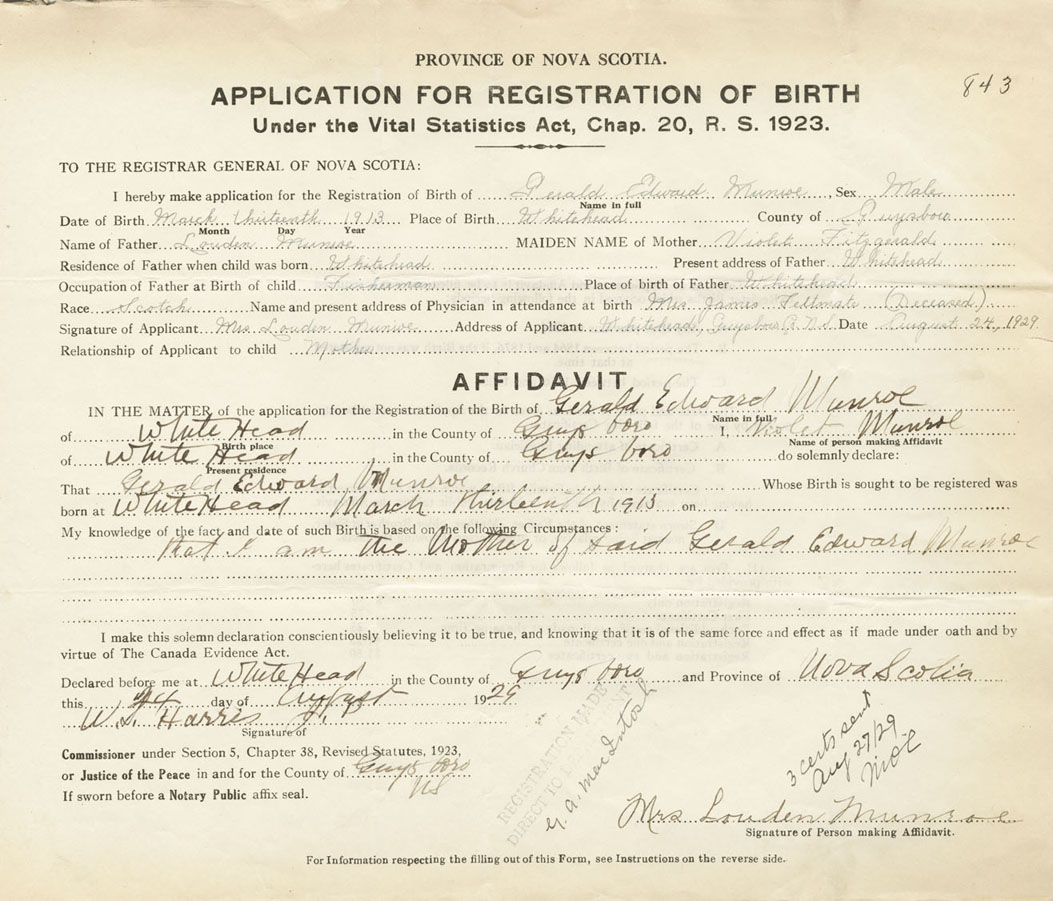 PROVINCE OF NOVA SCOTIA.
843
APPLICATION FOR REGISTRATION OF BIRTH
Under the Vital Statistics Act, Chap. 20, R. S. 1923.
TO THE REGISTRAR GENERAL OF NOVA SCOTIA:
I hereby make application for the Registration of Birth of Gerald Edward Munroe, Sex Male
Name in full
Date of Birth March thirteenth 1913 Place of Birth Whitehead County of Guysboro
Month Day Year
Name of Father Louden Munroe MAIDEN NAME of Mother Violet Fitzgerald
Residence of Father when child was born Whitehead Present address of Father Whitehead
Occupation of Father at Birth of child Fisherman Place of birth of Father Whitehead
Race Scotch Name and present address of Physician in attendance at birth Mrs. James Feltmate (Deceased)
Signature of Applicant Mrs Louden Munroe Address of Applicant Whitehead, Guysboro Co N.S Date August 24, 1929
Relationship of Applicant to child Mother
AFFIDAVIT
IN THE MATTER of the application for the Registration of the Birth of Gerald Edward Munroe
Name in full
of White Head in the County of Guysboro I, Violet Munroe
Birth place Name of person making Affidavit
of White Head in the County of Guysboro do solemnly declare:
Present residence
That Gerald Edward Munroe Whose Birth is sought to be registered was
born at White Head March thirteenth 1913 on
My knowledge of the fact and date of such Birth is based on the following Circumstances:
that I am the Mother of said Gerald Edward Munroe
I make this solemn declaration conscientiously believing it to be true, and knowing that it is of the same force and effect as if made under oath and by
virtue of The Canada Evidence Act.
Declared before me at White Head in the County of Guysboro and Province of Nova Scotia
this 24 day of August 1929
W. S. Harris
Signature of
Commissioner under Section 5, Chapter 38, Revised Statutes, 1923,
or Justice of the Peace in and for the County of Guysboro
NS
If sworn before a Notary Public affix seal.
REGISTRATION MADE
DIRECT TO
G. A. MacIntosh
3 certs sent
Aug 27/29
Mrs Louden Munroe
Signature of Person making Affidavit.
For Information respecting the filling out of this Form, see Instructions on the reverse side.